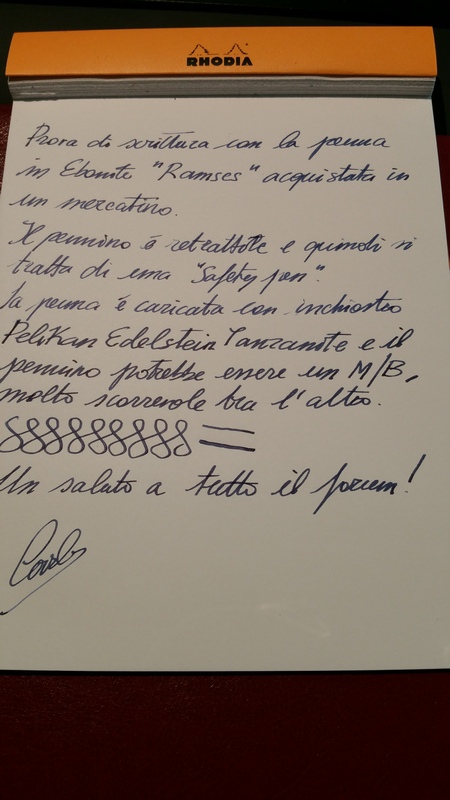 RHODIA
Prova di scrittura con la penna
in Ebanite "Ramses" acquistata in
un mercatino.
Il pennino è retrattile e quindi si
tratta di una "Safety pen".
La penna è caricata con inchiostro
Pelikan Edelstein Tanzanite e il
pennino potrebbe essere un M/B,
molto scorrevole tra l'altro.
Un saluto a tutto il forum!